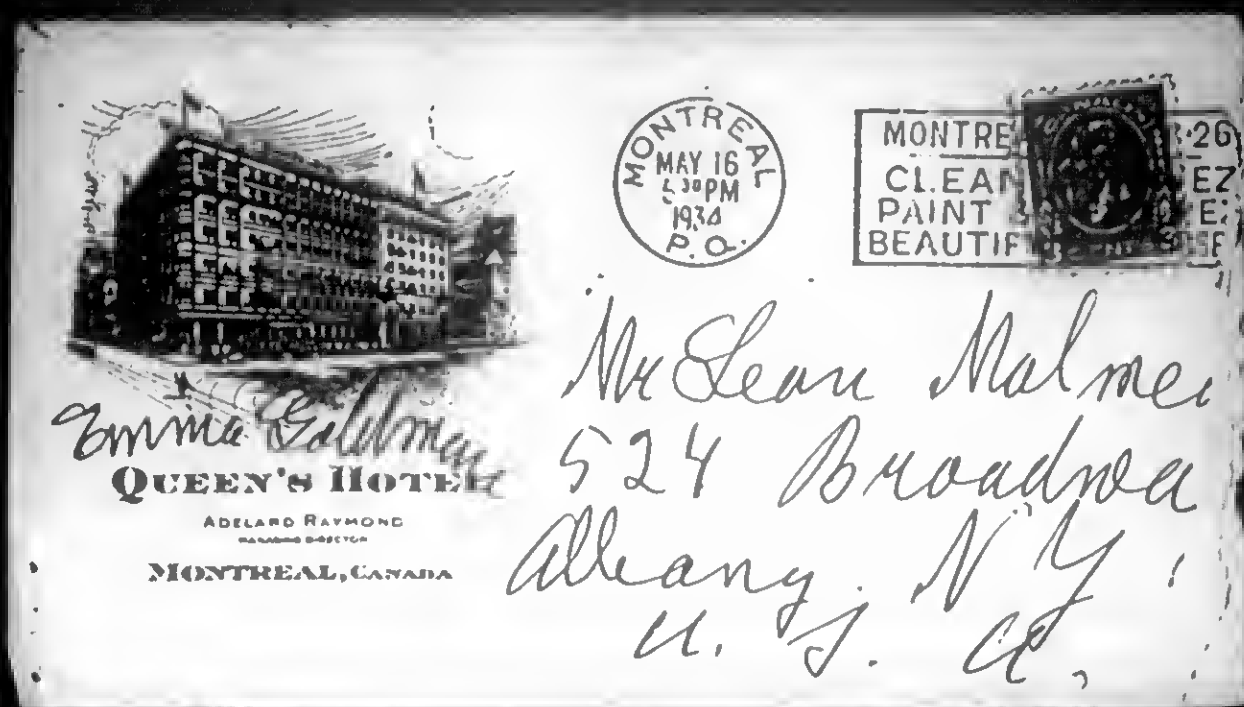 Emma Goldman
QUEEN'S HOTEL
ADELARD RAYMOND
MANAGING DIRECTOR
MONTREAL, CANADA
MONTREAL
MAY 16
30 PM
1934
P.Q.
MONTRE 26
CLEAN EZ
PAINT
BEAUTIF
Mr Leon Malmed
524 Broadwa
Albany. N Y.
U. S. A.